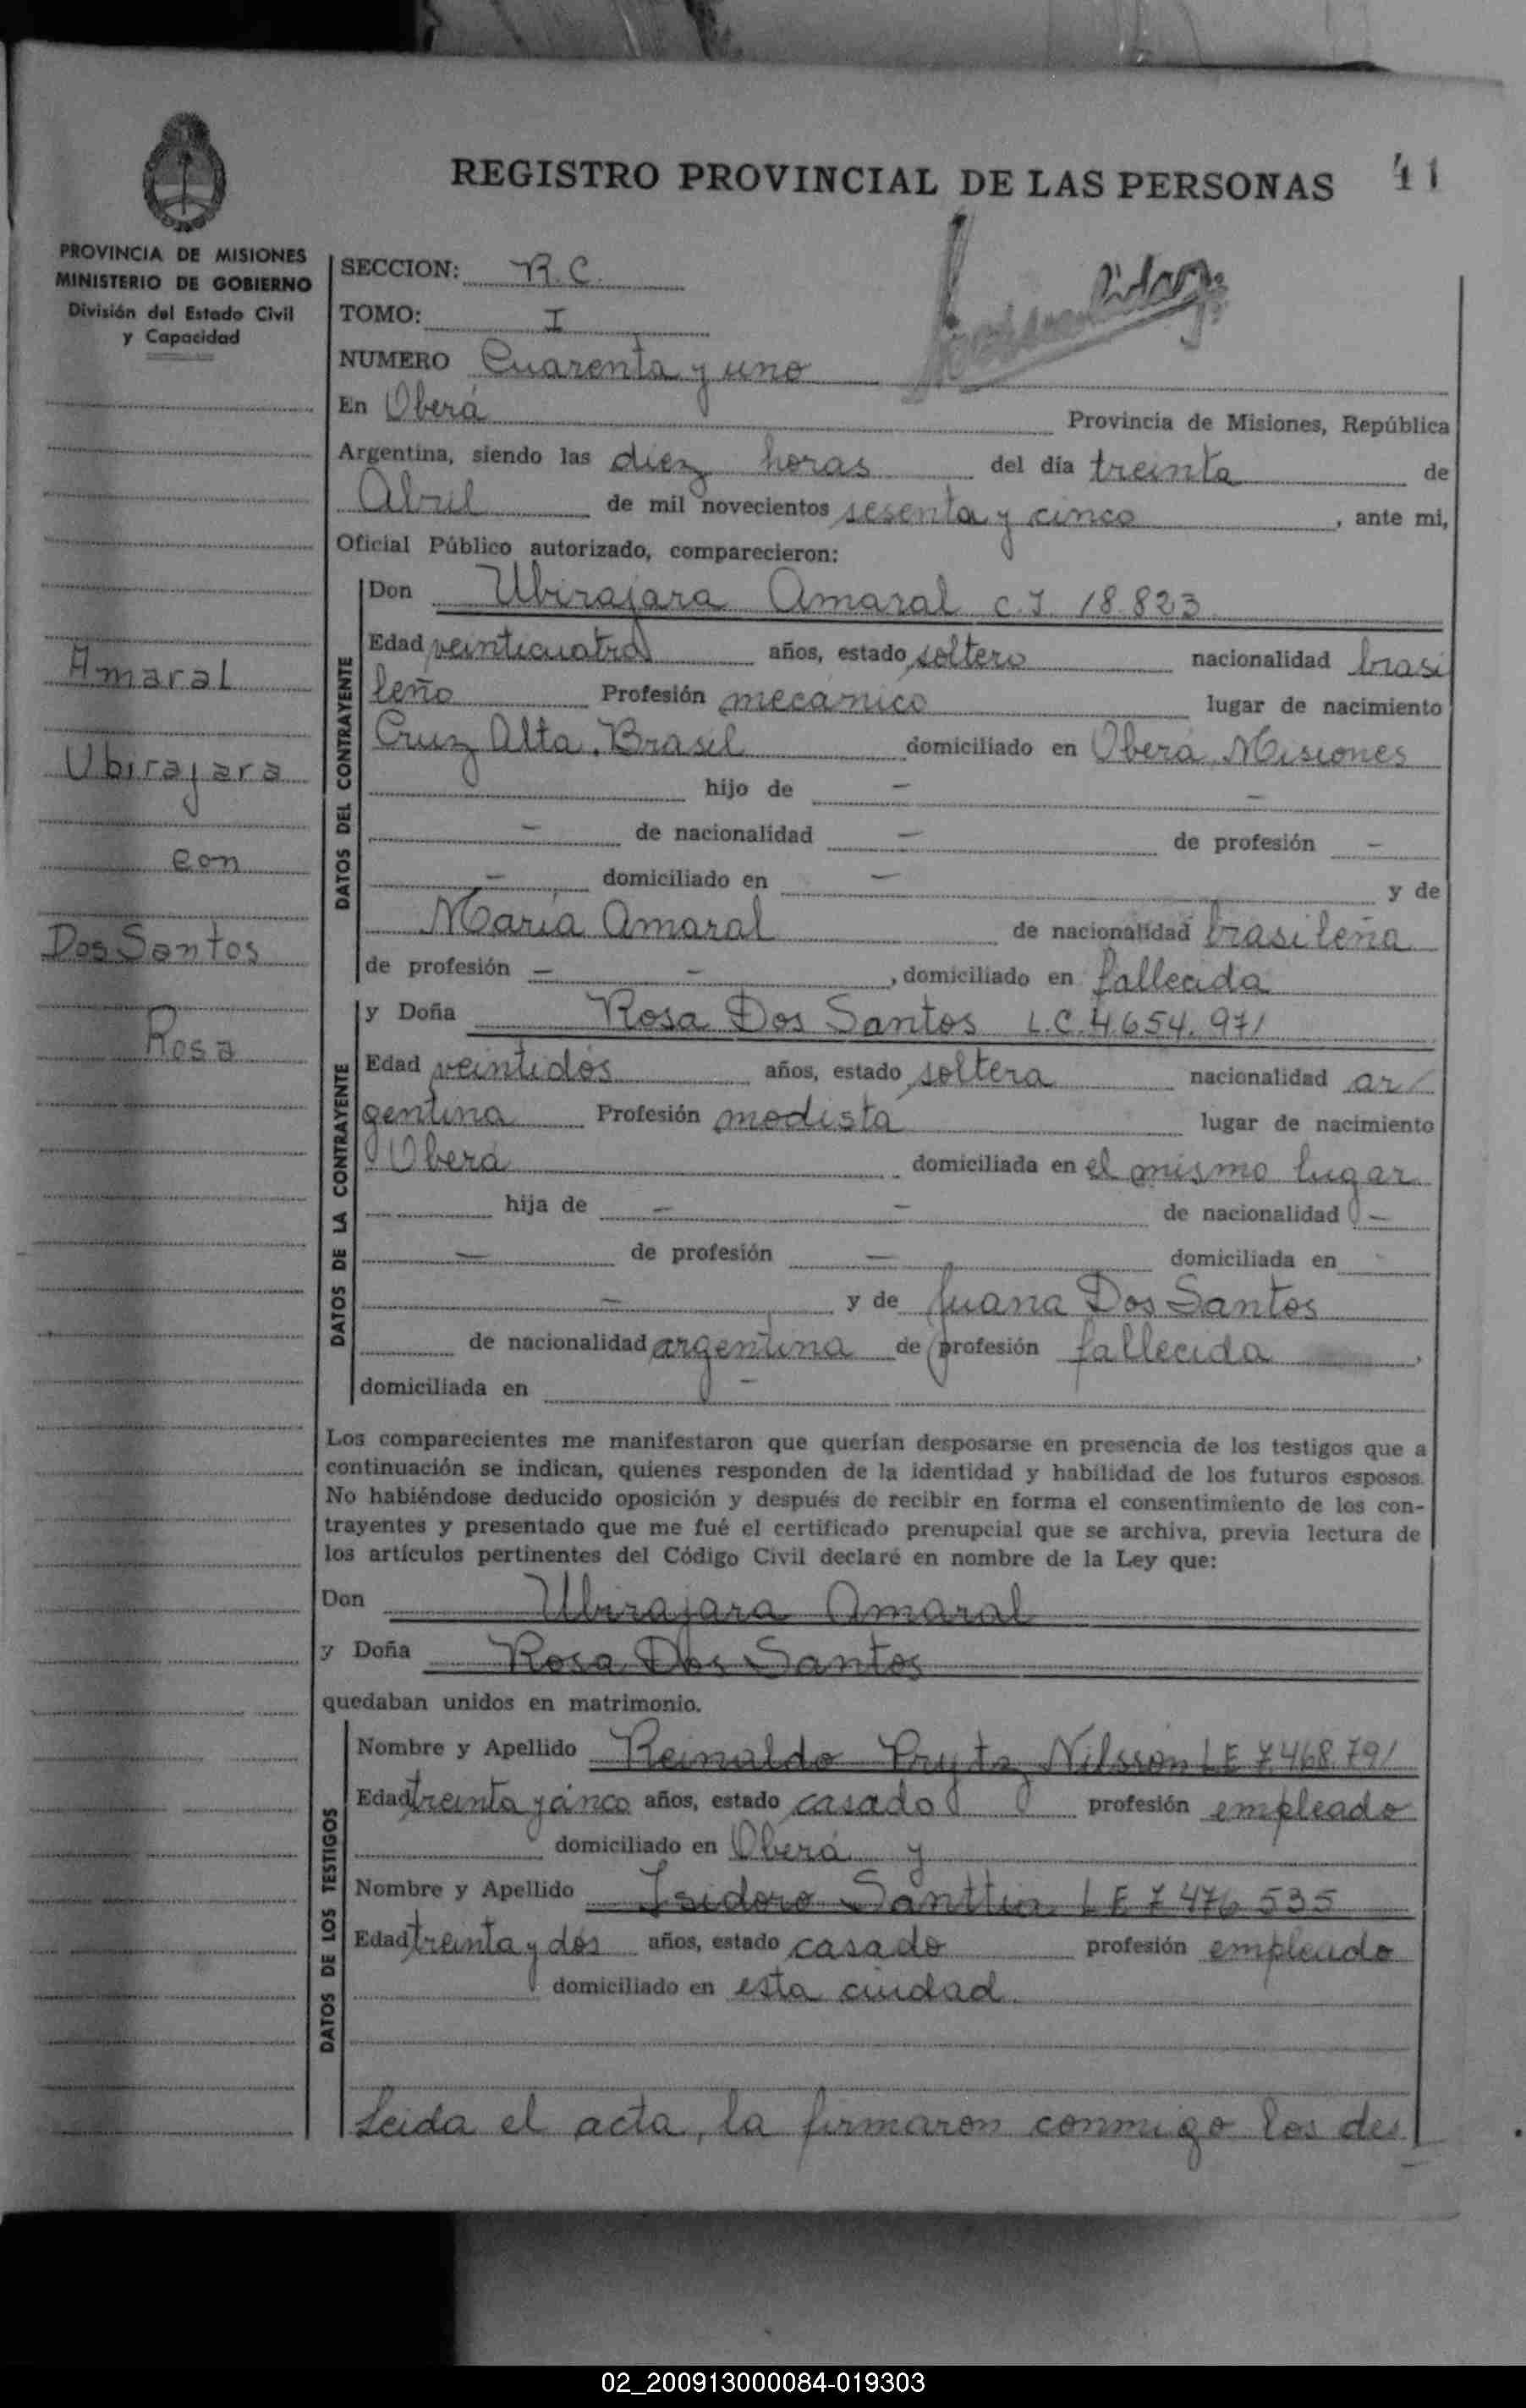 REGISTRO PROVINCIAL DE LAS PERSONAS 41
PROVINCIA DE MISIONES
MINISTERIO DE GOBIERNO
División del Estado Civil
y Capacidad
Amaral
Ubirajara
con
Dos Santos
Rosa
SECCION: R.C.
TOMO: I
NUMERO Cuarenta y uno
En Oberá Provincia de Misiones, República
Argentina, siendo las diez horas del día treinta de
Abril de mil novecientos sesenta y cinco, ante mi,
Oficial Público autorizado, comparecieron:
DATOS DEL CONTRAYENTE
Don Ubirajara Amaral C.I. 18.823
Edad veinticuatro años, estado soltero nacionalidad brasi
leño Profesión mecánico lugar de nacimiento
Cruz Alta. Brasil domiciliado en Oberá, Misiones
hijo de - -
- de nacionalidad - de profesión -
- domiciliado en - y de
María Amaral de nacionalidad brasileña
de profesión - - , domiciliado en fallecida
DATOS DE LA CONTRAYENTE
y Doña Rosa Dos Santos L.C. 4.654.971
Edad veintidós años, estado soltera nacionalidad ar
gentina Profesión modista lugar de nacimiento
Oberá domiciliada en el mismo lugar
hija de - - de nacionalidad -
- de profesión - domiciliada en -
- y de Juana Dos Santos
de nacionalidad argentina de profesión fallecida ,
domiciliada en -
Los comparecientes me manifestaron que querían desposarse en presencia de los testigos que a
continuación se indican, quienes responden de la identidad y habilidad de los futuros esposos.
No habiéndose deducido oposición y después de recibir en forma el consentimiento de los con-
trayentes y presentado que me fué el certificado prenupcial que se archiva, previa lectura de
los artículos pertinentes del Código Civil declaré en nombre de la Ley que:
Don Ubirajara Amaral
y Doña Rosa Dos Santos
quedaban unidos en matrimonio.
DATOS DE LOS TESTIGOS
Nombre y Apellido Reinaldo Prytz Nilsson LE 7.468.791
Edad treinta y cinco años, estado casado profesión empleado
domiciliado en Oberá y
Nombre y Apellido Isidoro LE 7.476.535
Edad treinta y dos años, estado casado profesión empleado
domiciliado en esta ciudad.
Leida el acta, la firmaron conmigo los des
02_200913000084-019303